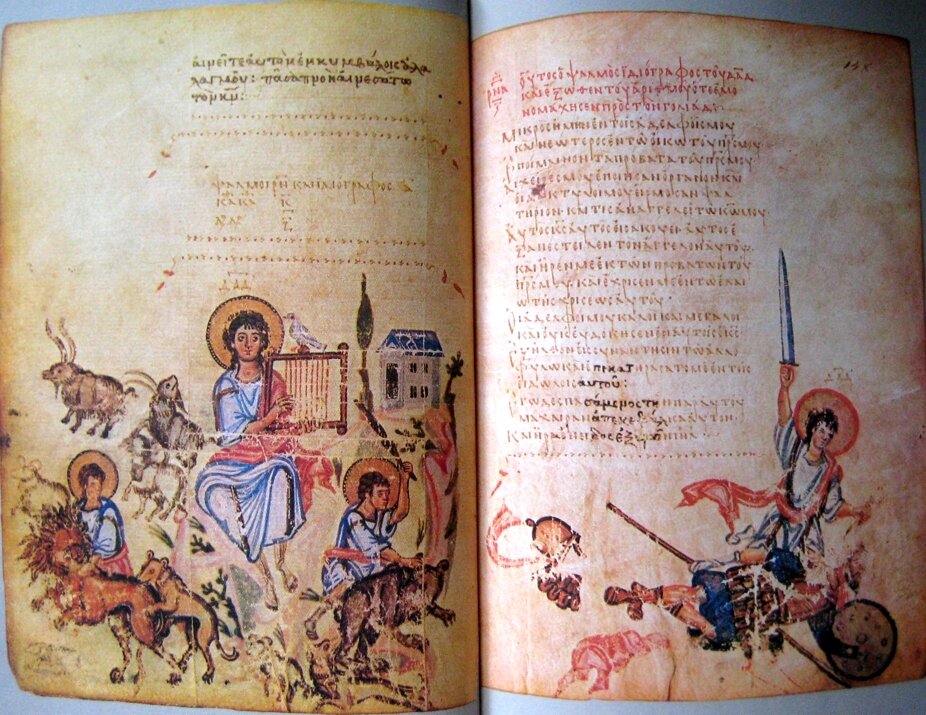 αινεῖτεαυτὸνενκυμβάλοισαλα
λαγμοῦ: πᾶσαπνοὴαινεσάτω
τὸνκν:
ψαλμοὶρν καὶιδιόγραφοσ α
δαδ
ρνα
οὗτοσοψαλμὸσϊδιόγραφοστοῦδαδ
καὶἔξωθεντοῦἀριθμοῦὅτεἐμο
νομάχησενπρὸστὸνγολιάδ:
Μικρὸσήμηνεντοῖσαδελφοῖσμου
καὶνεώτεροσεντῶοίκωτοῦπρσμου
Εποίμαινονταπρόβατατοῦπρσμου
Αιχεῖρεσμουεποίησανόργανονκαι
οιδάκτυλοίμουήρμοσανψαλ
τήριον· καιτίσαναγγελεῖτῶκωμου·
Αυτὸσκσαυτὸσεισακούει· αυτὸσ
εξαπέστειλεντὸνάγγελοναυτοῦ
καιῆρενμεεκτῶνπροβάτωντοῦ
πρσμου· καιέχρισένμεεντῶελαί
ωτῆσχρίσεωσαυτοῦ·
Οιαδελφοίμουκαλοὶκαιμεγάλοι
καιουκευδόκησενεναυτοῖσοκσ·
Εξῆλθονεισσυνάντησιντῶαλλο
φύλωκαιεπικατηράσατόμεεντοῖσ
ειδώλοισαυτοῦ:
Εγὼδεσπασάμενοστὴνπαραυτοῦ
μάχαιραναπεκεφάλισααυτὸν
Καιῆραόνειδοσεξυιῶνιηλ·
δαδ